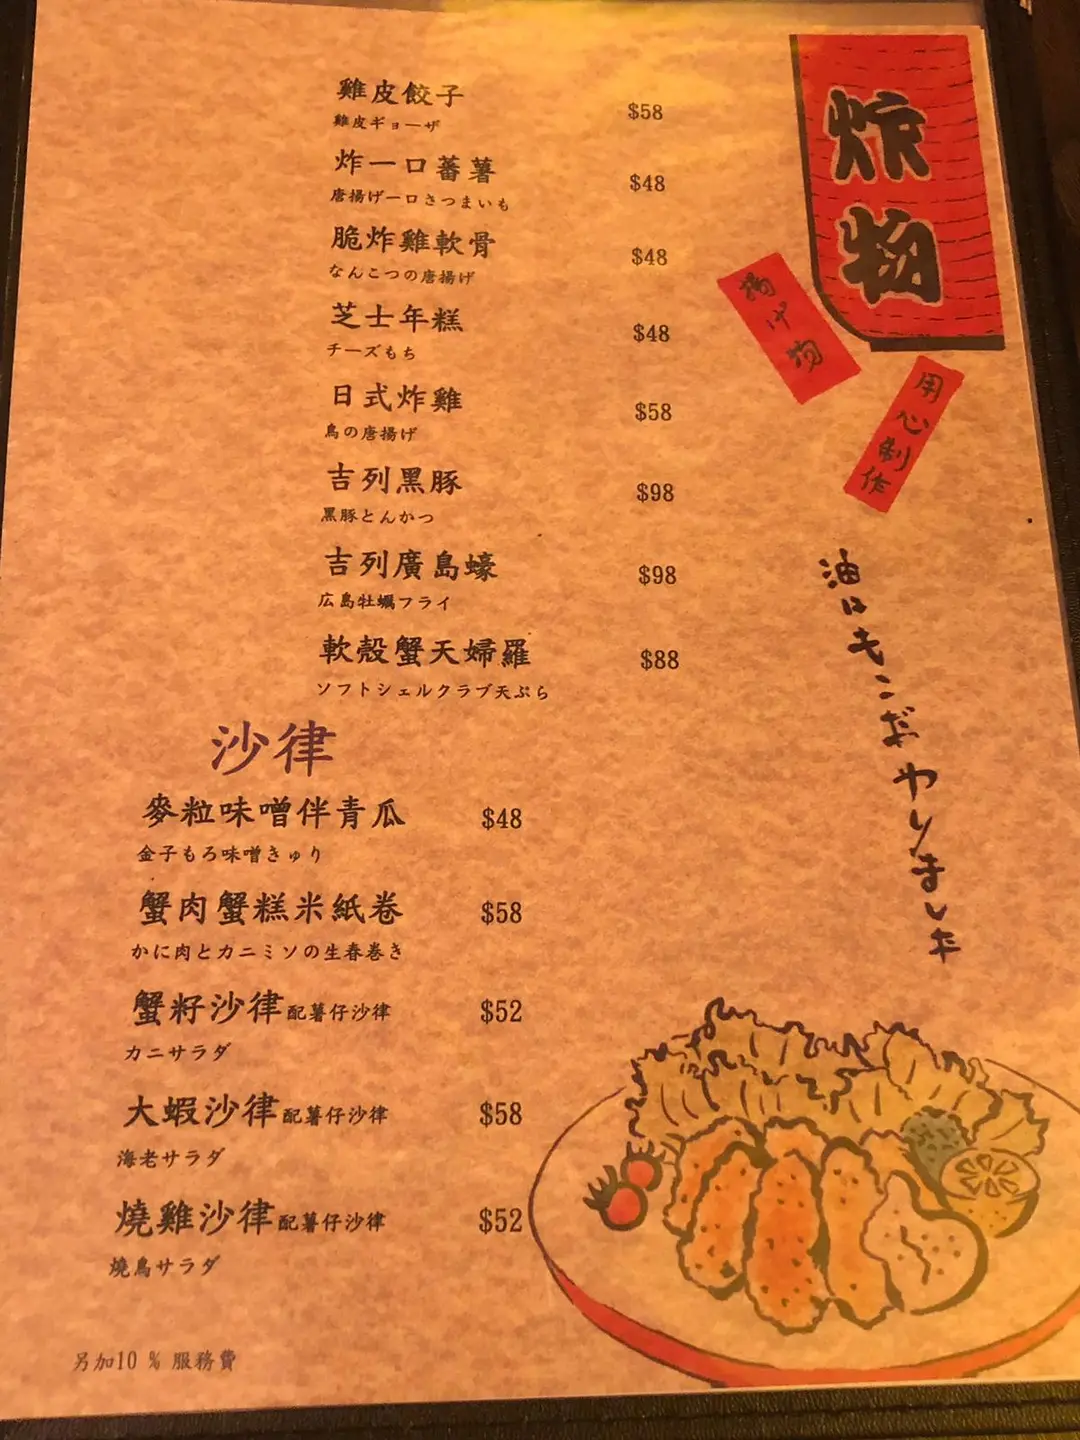 炸物
揚げ物
用心制作
雞皮餃子 $58
雞皮ギョーザ
炸一口蕃薯 $48
唐揚げ一口さつまいも
脆炸雞軟骨 $48
なんこつの唐揚げ
芝士年糕 $48
チーズもち
日式炸雞 $58
鳥の唐揚げ
吉列黑豚 $98
黒豚とんかつ
吉列廣島蠔 $98
広島牡蠣フライ
軟殼蟹天婦羅 $88
ソフトシェルクラブ天ぷら
沙律
麥粒味噌伴青瓜 $48
金子もろ味噌きゅり
蟹肉蟹糕米紙卷 $58
かに肉とカニミソの生春巻き
蟹籽沙律配薯仔沙律 $52
カニサラダ
大蝦沙律配薯仔沙律 $58
海老サラダ
燒雞沙律配薯仔沙律 $52
燒鳥サラダ
另加10 % 服務費